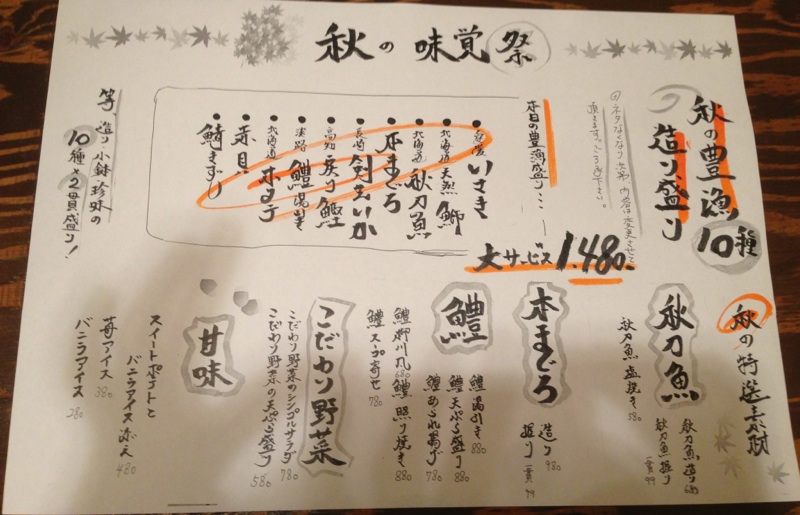 秋の味覚祭
秋の豊漁10種
造り盛り
大サービス1.480.
本日の豊漁盛り…
いさき
北海道 天然鰤
北海道 秋刀魚
本まぐろ
長崎 剣先いか
高知 戻り鰹
淡路 鱧湯引き
北海道 ホタテ
赤貝
鯖きずし
等、造り小鉢珍味の
10種×2貫盛り!
秋の特選素材
秋刀魚
秋刀魚造り 680
秋刀魚握り 一貫99
秋刀魚塩焼き 580
本まぐろ
造り 980
握り 一貫99
鱧
鱧湯引き 880
鱧天ぷら盛り 880
鱧あられ揚げ 780
鱧照り焼き 880
鱧柳川風 680
鱧スープ寄せ 780
こだわり野菜
こだわり野菜のシンプルサラダ 780
こだわり野菜の天ぷら盛り 580
甘味
スイートポテトと
バニラアイス添え 480
苺アイス 380
バニラアイス 280